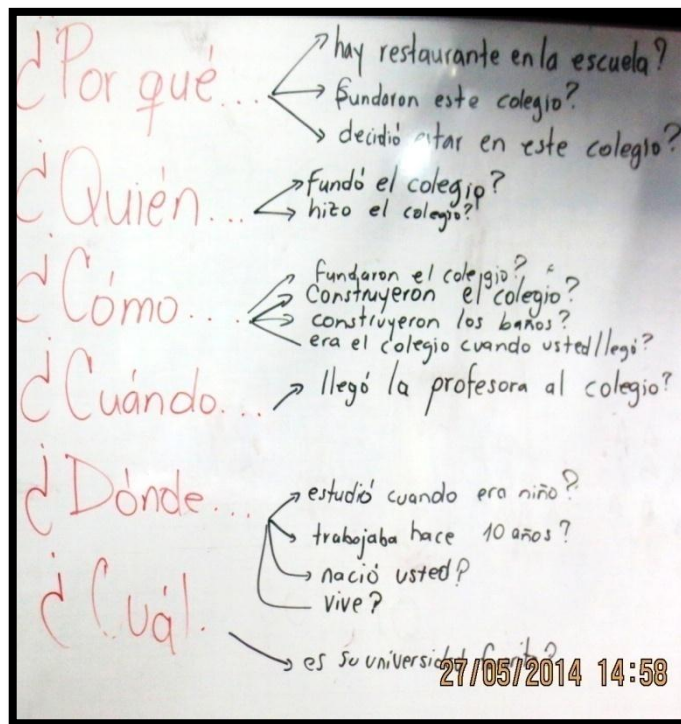 ¿Por qué...
hay restaurante en la escuela?
fundaron este colegio?
decidió estar en este colegio?
¿Quién...
fundó el colegio?
hizo el colegio?
¿Cómo...
fundaron el colegio?
Construyeron el colegio?
construyeron los baños?
era el colegio cuando usted llegó?
¿Cuándo...
llegó la profesora al colegio?
¿Dónde...
estudió cuando era niño?
trabajaba hace 10 años?
nació usted?
vive?
¿Cuál.
es su universidad
27/05/2014 14:58